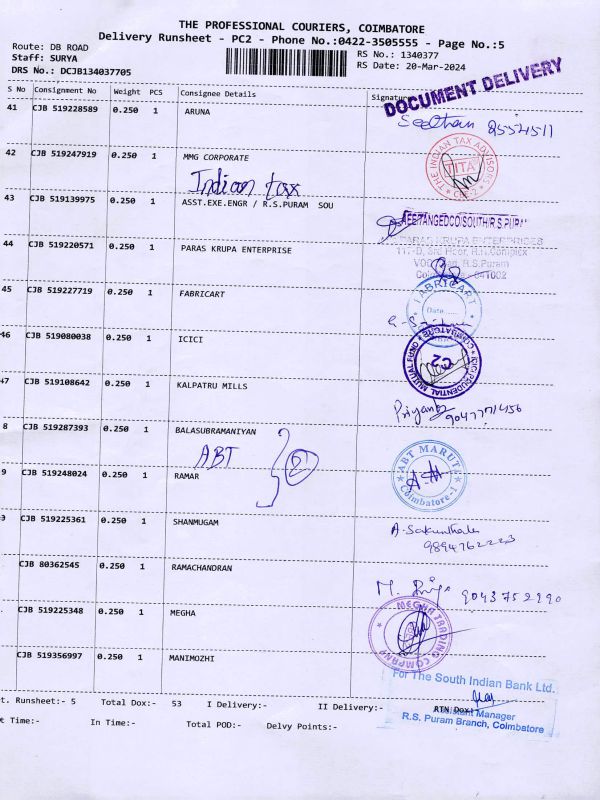 THE PROFESSIONAL COURIERS, COIMBATORE
Delivery Runsheet - PC2 - Phone No.:0422-3505555 - Page No.:5
Route: DB ROAD
Staff: SURYA
DRS No.: DCJB134037705
RS No.: 1340377
RS Date: 20-Mar-2024
DOCUMENT DELIVERY
S No Consignment No Weight PCS Consignee Details Signatu
41 CJB 519228589 0.250 1 ARUNA
42 CJB 519247919 0.250 1 MMG CORPORATE
THE INDIAN TAX ADVISOR
TITA
Indian tax
43 CJB 519139975 0.250 1 ASST.EXE.ENGR / R.S.PURAM SOU
44 CJB 519220571 0.250 1 PARAS KRUPA ENTERPRISE
PARAS KRUPA ENTERPRISES
117-D, 3rd Floor, R.H.Complex
R.S.Puram
641002
45 CJB 519227719 0.250 1 FABRICART
FABRICART
Date
46 CJB 519080038 0.250 1 ICICI
47 CJB 519108642 0.250 1 KALPATRU MILLS
Priyanka
8 CJB 519287393 0.250 1 BALASUBRAMANIYAN
ABT
ABT MARUTI
Coimbatore-1
9 CJB 519248024 0.250 1 RAMAR
CJB 519225361 0.250 1 SHANMUGAM
A. Sakunthala
9894762223
CJB 80362545 1 RAMACHANDRAN
9043752290
CJB 519225348 0.250 1 MEGHA
MEGHA TRADING COMPANY
CJB 519356997 0.250 1 MANIMOZHI
For The South Indian Bank Ltd.
Assistant Manager
R.S. Puram Branch, Coimbatore
t. Runsheet:- 5 Total Dox:- 53 I Delivery:- II Delivery:- RTN Dox:
t Time:- In Time:- Total POD:- Delvy Points:-